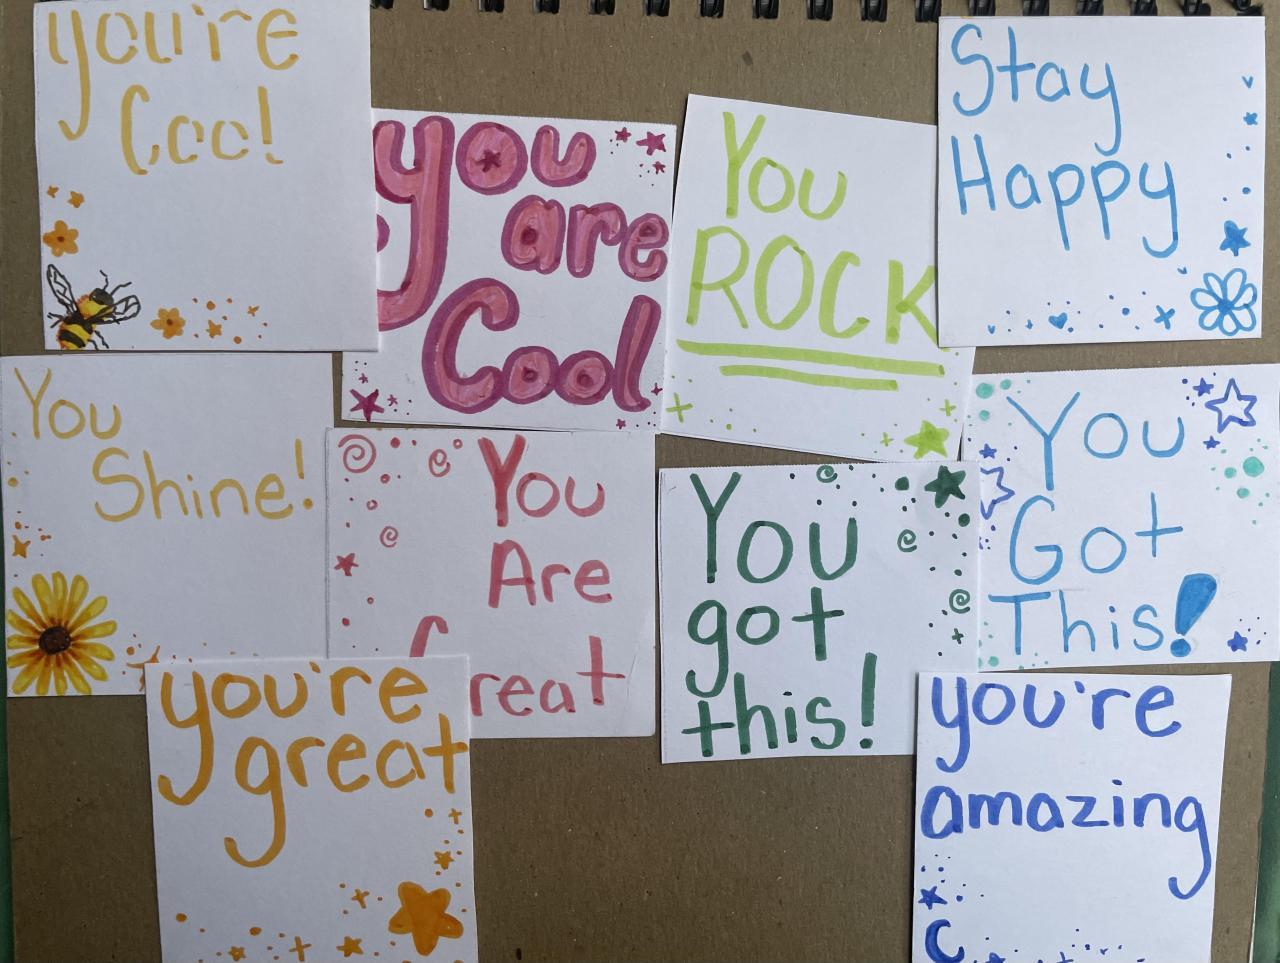 you're
Cool
you
are
Cool
You
ROCK
Stay
Happy
You
Shine!
You
Are
Great
You
got
this!
You
Got
This!
you're
great
you're
amazing